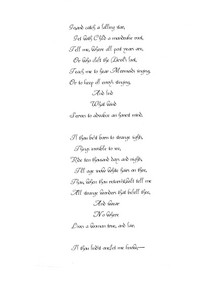 Go and catch a falling star,
Get with Child a mandrake root,
Tell me, where all past years are,
Or who cleft the Devil's foot,
Teach me to hear Mermaids singing,
Or to keep off envy's stinging,
And find
What wind
Serves to advance an honest mind.
If thou be'st born to strange sights,
Things invisible to see,
Ride ten thousand days and nights,
Till age snow white hairs on thee,
Thou, when thou return'st wilt tell me
All strange wonders that befell thee,
And swear
No where
Lives a woman true, and fair.
If thou find'st one, let me know,—